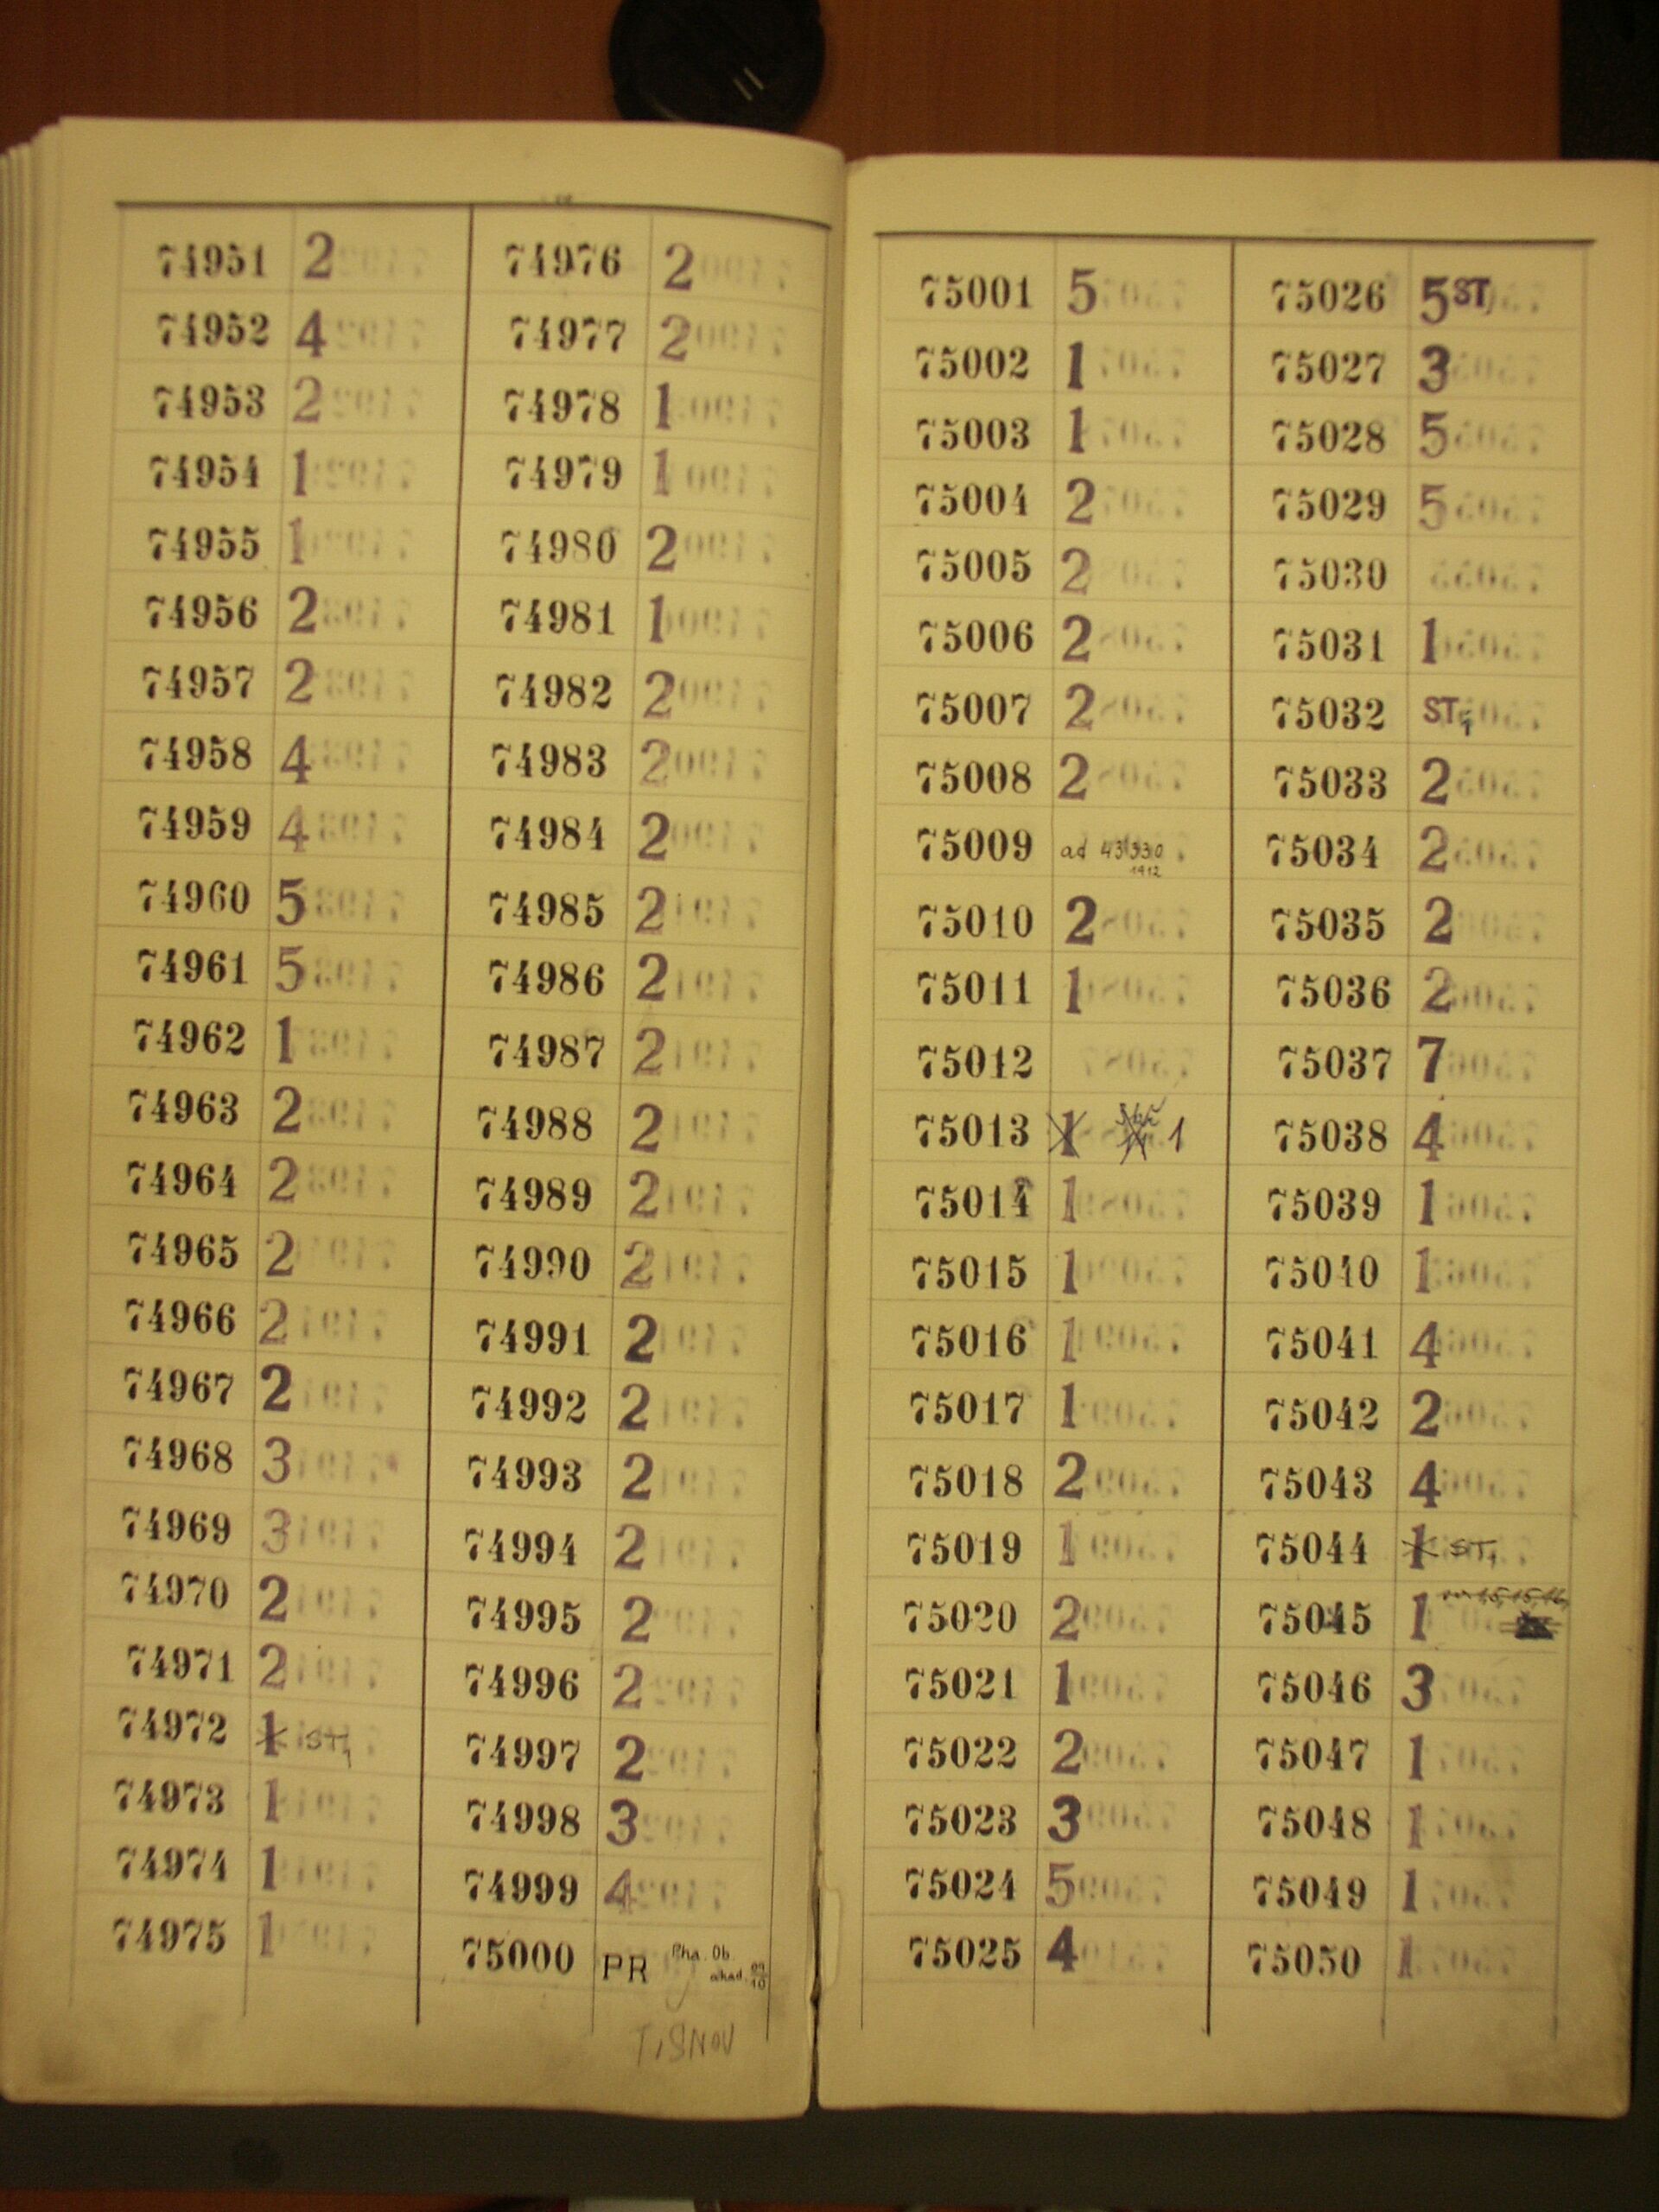 74951 2
74952 4
74953 2
74954 1
74955 1
74956 2
74957 2
74958 4
74959 4
74960 5
74961 5
74962 1
74963 2
74964 2
74965 2
74966 2
74967 2
74968 3
74969 3
74970 2
74971 2
74972 1 ST1
74973 1
74974 1
74975 1
74976 2
74977 2
74978 1
74979 1
74980 2
74981 1
74982 2
74983 2
74984 2
74985 2
74986 2
74987 2
74988 2
74989 2
74990 2
74991 2
74992 2
74993 2
74994 2
74995 2
74996 2
74997 2
74998 3
74999 4
75000 PR
TIŠNOV
75001 5
75002 1
75003 1
75004 2
75005 2
75006 2
75007 2
75008 2
75009 ad
1912
75010 2
75011 1
75012
75013 1 1
75014 1
75015 1
75016 1
75017 1
75018 2
75019 1
75020 2
75021 1
75022 2
75023 3
75024 5
75025 4
75026 5 ST,
75027 3
75028 5
75029 5
75030
75031 1
75032 ST,1
75033 2
75034 2
75035 2
75036 2
75037 7
75038 4
75039 1
75040 1
75041 4
75042 2
75043 4
75044 1 ST1
75045 1
75046 3
75047 1
75048 1
75049 1
75050 1